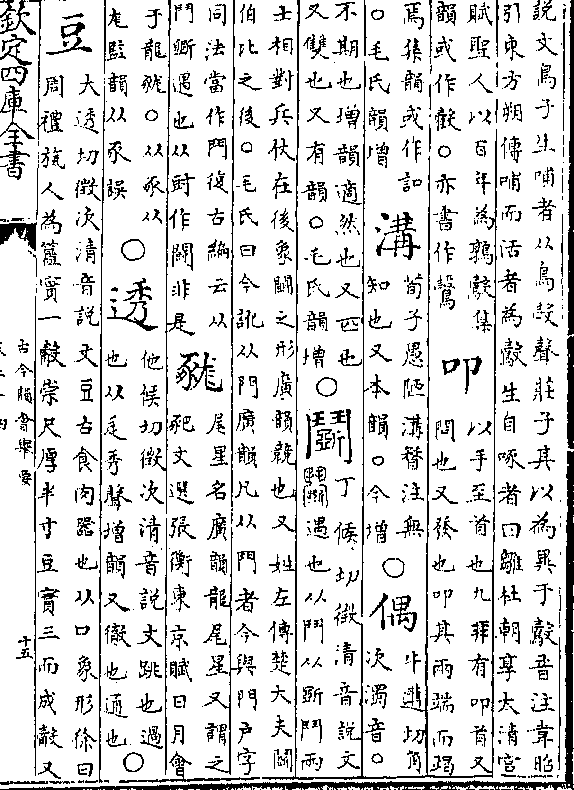 說文鳥子生哺者从鳥㱿聲莊子其以為異于鷇音注韋昭
引東方朔傳哺而活者為鷇生自啄者曰雛杜朝享太清宫
賦聖人以百年為鶉鷇集
韻或作㲉○亦書作鷇
叩
以手至首也九拜有叩首又
問也又發也叩其兩端而竭
焉集韻或作訆
○毛氏韻増
溝
荀子愚陋溝瞀注無
知也又本韻○今増○
偶
牛遘切角
次濁音○
不期也增韻適然也又匹也
又雙也又有韻○毛氏韻增○
鬭
丁候切徵清音說文
遇也从鬥从斲鬥兩
士相對兵仗在後象鬭之形廣韻競也又姓左傳楚大夫鬭
伯比之後○毛氏曰今訛从門廣韻凡从鬥者今與門戸字
同法當作鬥復古編云从
鬥斲遇也从尌作鬬非是
豵
尾星名廣韻龍尾星又謂之
豝文選張衡東京賦日月會
于龍豵○从豕从
尨監韻从豕誤○
透
他候切徵次清音說文跳也過
也从辵秀聲增韻又徹也通也○
豆
大透切徵次清音說文豆古食肉器也从口象形徐曰
周禮旊人為簋實一觳崇尺厚半寸豆實三而成觳又
欽定四庫全書
古今韻會舉要
十五